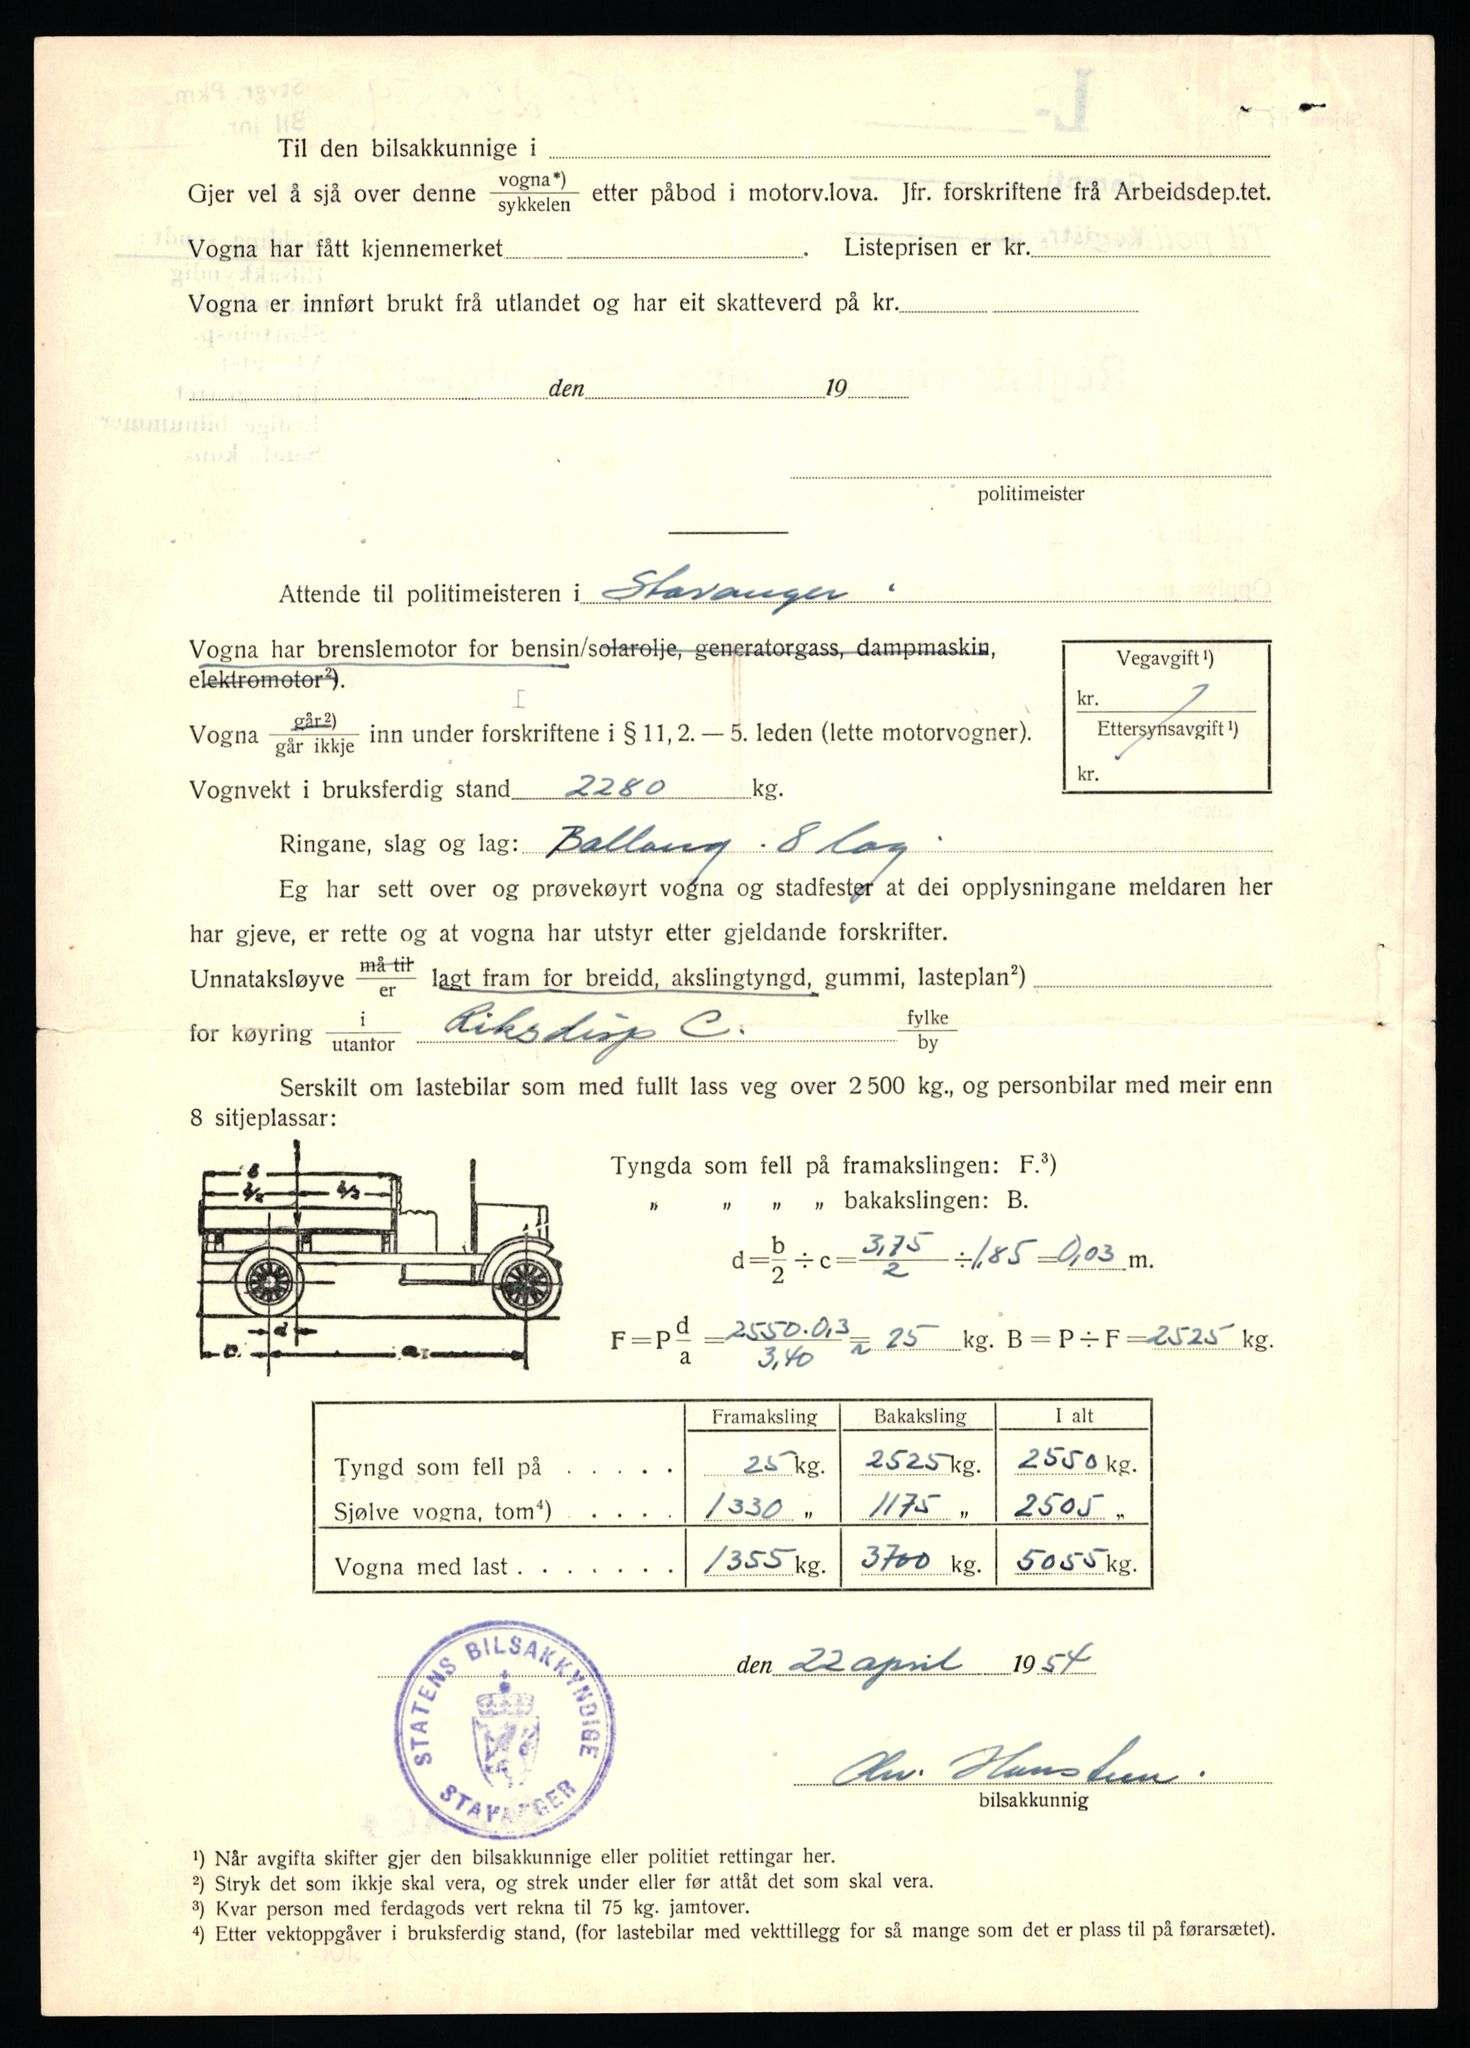 Til den bilsakkunnige i
Gjer vel å sjå over denne vogna*) / sykkelen etter påbod i motorv.lova. Jfr. forskriftene frå Arbeidsdep.tet.
Vogna har fått kjennemerket . Listeprisen er kr.
Vogna er innført brukt frå utlandet og har eit skatteverd på kr.
den 19
politimeister
Attende til politimeisteren i Stavanger.
Vogna har brenslemotor for bensin/solarolje, generatorgass, dampmaskin,
elektromotor²).
Vegavgift ¹)
kr.
Ettersynsavgift ¹)
kr.
Vogna går²) / går ikkje inn under forskriftene i § 11, 2. — 5. leden (lette motorvogner).
Vognvekt i bruksferdig stand 2280 kg.
Ringane, slag og lag: Ballong. 8 lag.
Eg har sett over og prøvekøyrt vogna og stadfester at dei opplysningane meldaren her
har gjeve, er rette og at vogna har utstyr etter gjeldande forskrifter.
Unnataksløyve må til / er lagt fram for breidd, akslingtyngd, gummi, lasteplan²)
for køyring i / utanfor Riksdisp C. fylke / by
Serskilt om lastebilar som med fullt lass veg over 2 500 kg., og personbilar med meir enn
8 sitjeplassar:
Tyngda som fell på framakslingen: F.³)
„ „ „ „ bakakslingen: B.
d = b/2 ÷ c = 3,75/2 ÷ 1,85 = 0,03 m.
F = P d/a = 2550 . 0,3 / 3,40 = ~ 25 kg. B = P ÷ F = 2525 kg.
b
b/2 b/2
c d a
Framaksling Bakaksling I alt
Tyngd som fell på . . . . . 25 kg. 2525 kg. 2550 kg.
Sjølve vogna, tom⁴) . . . . 1330 „ 1175 „ 2505 „
Vogna med last . . . . . . . 1355 kg. 3700 kg. 5055 kg.
den 22 april 1954
STATENS BILSAKKYNDIGE
STAVANGER
bilsakkunnig
¹) Når avgifta skifter gjer den bilsakkunnige eller politiet rettingar her.
²) Stryk det som ikkje skal vera, og strek under eller før attåt det som skal vera.
³) Kvar person med ferdagods vert rekna til 75 kg. jamtover.
⁴) Etter vektoppgåver i bruksferdig stand, (for lastebilar med vekttillegg for så mange som det er plass til på førarsætet).